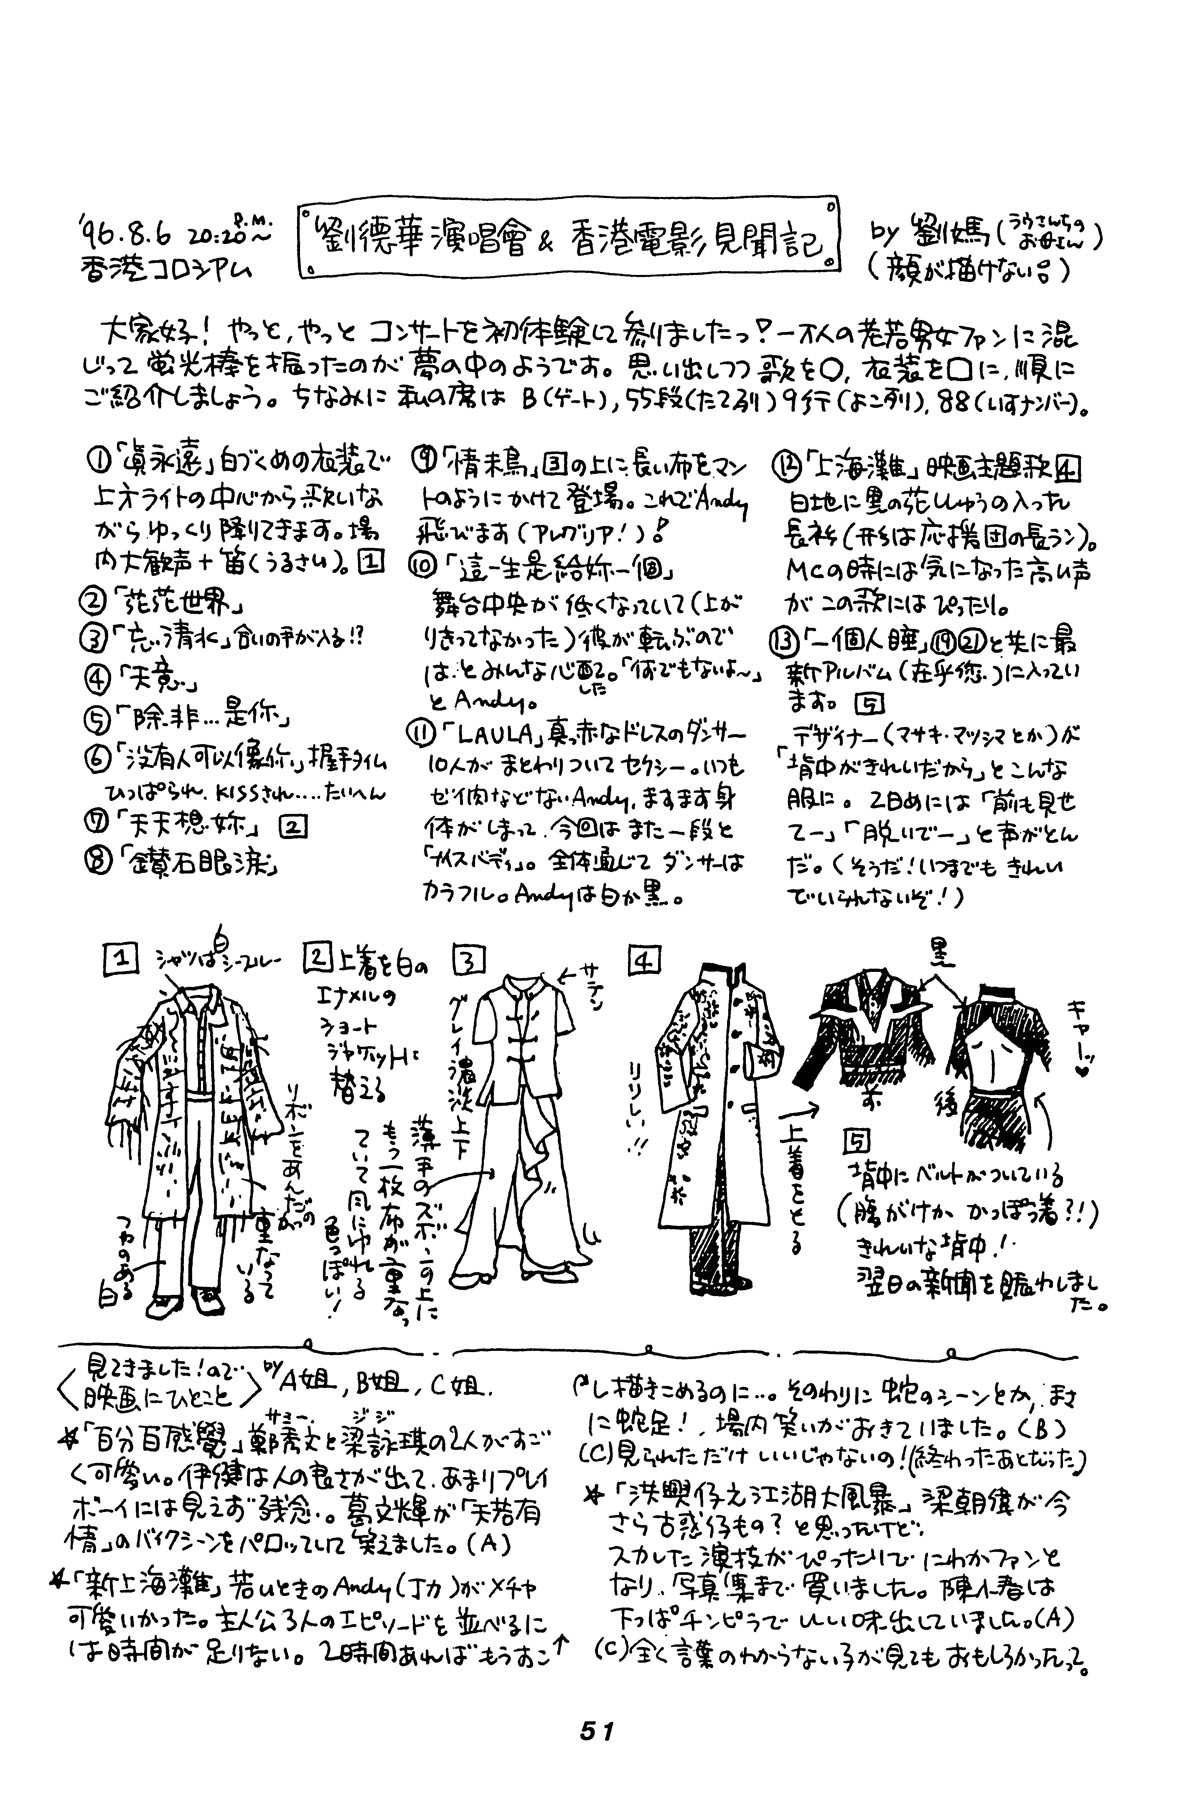 '96.8.6 20:20 P.M.〜
香港コロシアム
劉德華演唱會 & 香港電影見聞記
by 劉媽(うちさんちのお母さん)
(顔が描けない。)
大家好! やっと、やっと コンサートを初体験して参りましたっ! 一万人の老若男女ファンに混
じって蛍光棒を振ったのが夢の中のようです。思い出しつつ歌を○, 衣装を□に, 順に
ご紹介しましょう。ちなみに私の席は B(ゲート), 55段(たて列) 9行(よこ列), 88(いすナンバー)。
①「真永遠」白づくめの衣装で
上方ライトの中心から歌いな
がらゆっくり降りてきます。場
内大歓声+笛(うるさい)。1
②「花花世界」
③「忘情水」合いの手が入る!?
④「天意」
⑤「除非…是你」
⑥「没有人可以像你」握手タイム
ひっぱられ、KISSされ……たいへん
⑦「天天想妳」2
⑧「鑽石眼涙」
⑨「情未鳥」3の上に長い布をマン
トのようにかけて登場。これでAndy
飛びます(アレグリア!)!
⑩「這一生是給妳一個」
舞台中央が低くなっていて(上が
りきってなかった)彼が転ぶので
は、とみんな心配した。「何でもないよ〜」
とAndy。
⑪「LAULA」真っ赤なドレスのダンサー
10人がまとわりついてセクシー。いつも
ぜい肉などないAndy, ますます身
体がしまって、今回はまた一段と
「ナイスバディ」。全体通じてダンサーは
カラフル。Andyは白か黒。
⑫「上海灘」映画主題歌4
白地に黒の花ししゅうの入った
長衫(形は応援団の長ラン)。
MCの時には気になった高い声
がこの歌にはぴったり。
⑬「一個人睡」⑲㉑と共に最
新アルバム(在乎您)に入ってい
ます。5
デザイナー(マサキ・マツシマとか)が
「背中がきれいだから」とこんな
服に。2日めには「前も見せ
てー」「脱いでー」と声がとん
だ。(そうだ!いつまでもきれい
でいられないぞ!)
1
シャツは白シースルー
リボンをあんだのが
重なっている
フカのある
白
2 上着を白の
エナメルの
ショート
ジャケットに
替える
3
サテン
グレイ濃淡上下
薄手のズボンの上に
もう一枚布が重なっ
ていて風にゆれる
色っぽい!
4
りりしい!!
上着をとる
黒
前
後
キャーッ♥
5
背中にベルトがついている
(腹がけか かっぽう着?!)
きれいな背中!
翌日の新聞を賑わしまし
た。
〈見てきました!ので
映画にひとこと〉by A姐, B姐, C姐.
☆「百分百感覺」鄭秀文(サミー)と梁詠琪(ジジ)の2人がすご
く可愛い。伊健は人の良さが出て、あまりプレイ
ボーイには見えず残念。葛文輝が「天若有
情」のバイクシーンをパロってして笑えました。(A)
☆「新上海灘」若いときのAndy(丁力)がメチャ
可愛いかった。主人公3人のエピソードを並べるに
は時間が足りない。2時間あればもう少こ↑
し描きこめるのに…。そのわりに蛇のシーンとか, まさ
に蛇足!、場内笑いがおきていました。(B)
(C)見られただけいいじゃないの!(終わったあとだった)
☆「洪興仔之江湖大風暴」梁朝偉が今
さら古惑仔もの?と思ったけど、
スカした演技がぴったりで にわかファンと
なり、写真集まで買いました。陳小春は
下っぱチンピラでいい味出していました。(A)
(C)全く言葉のわからない子が見てもおもしろかったって。
51